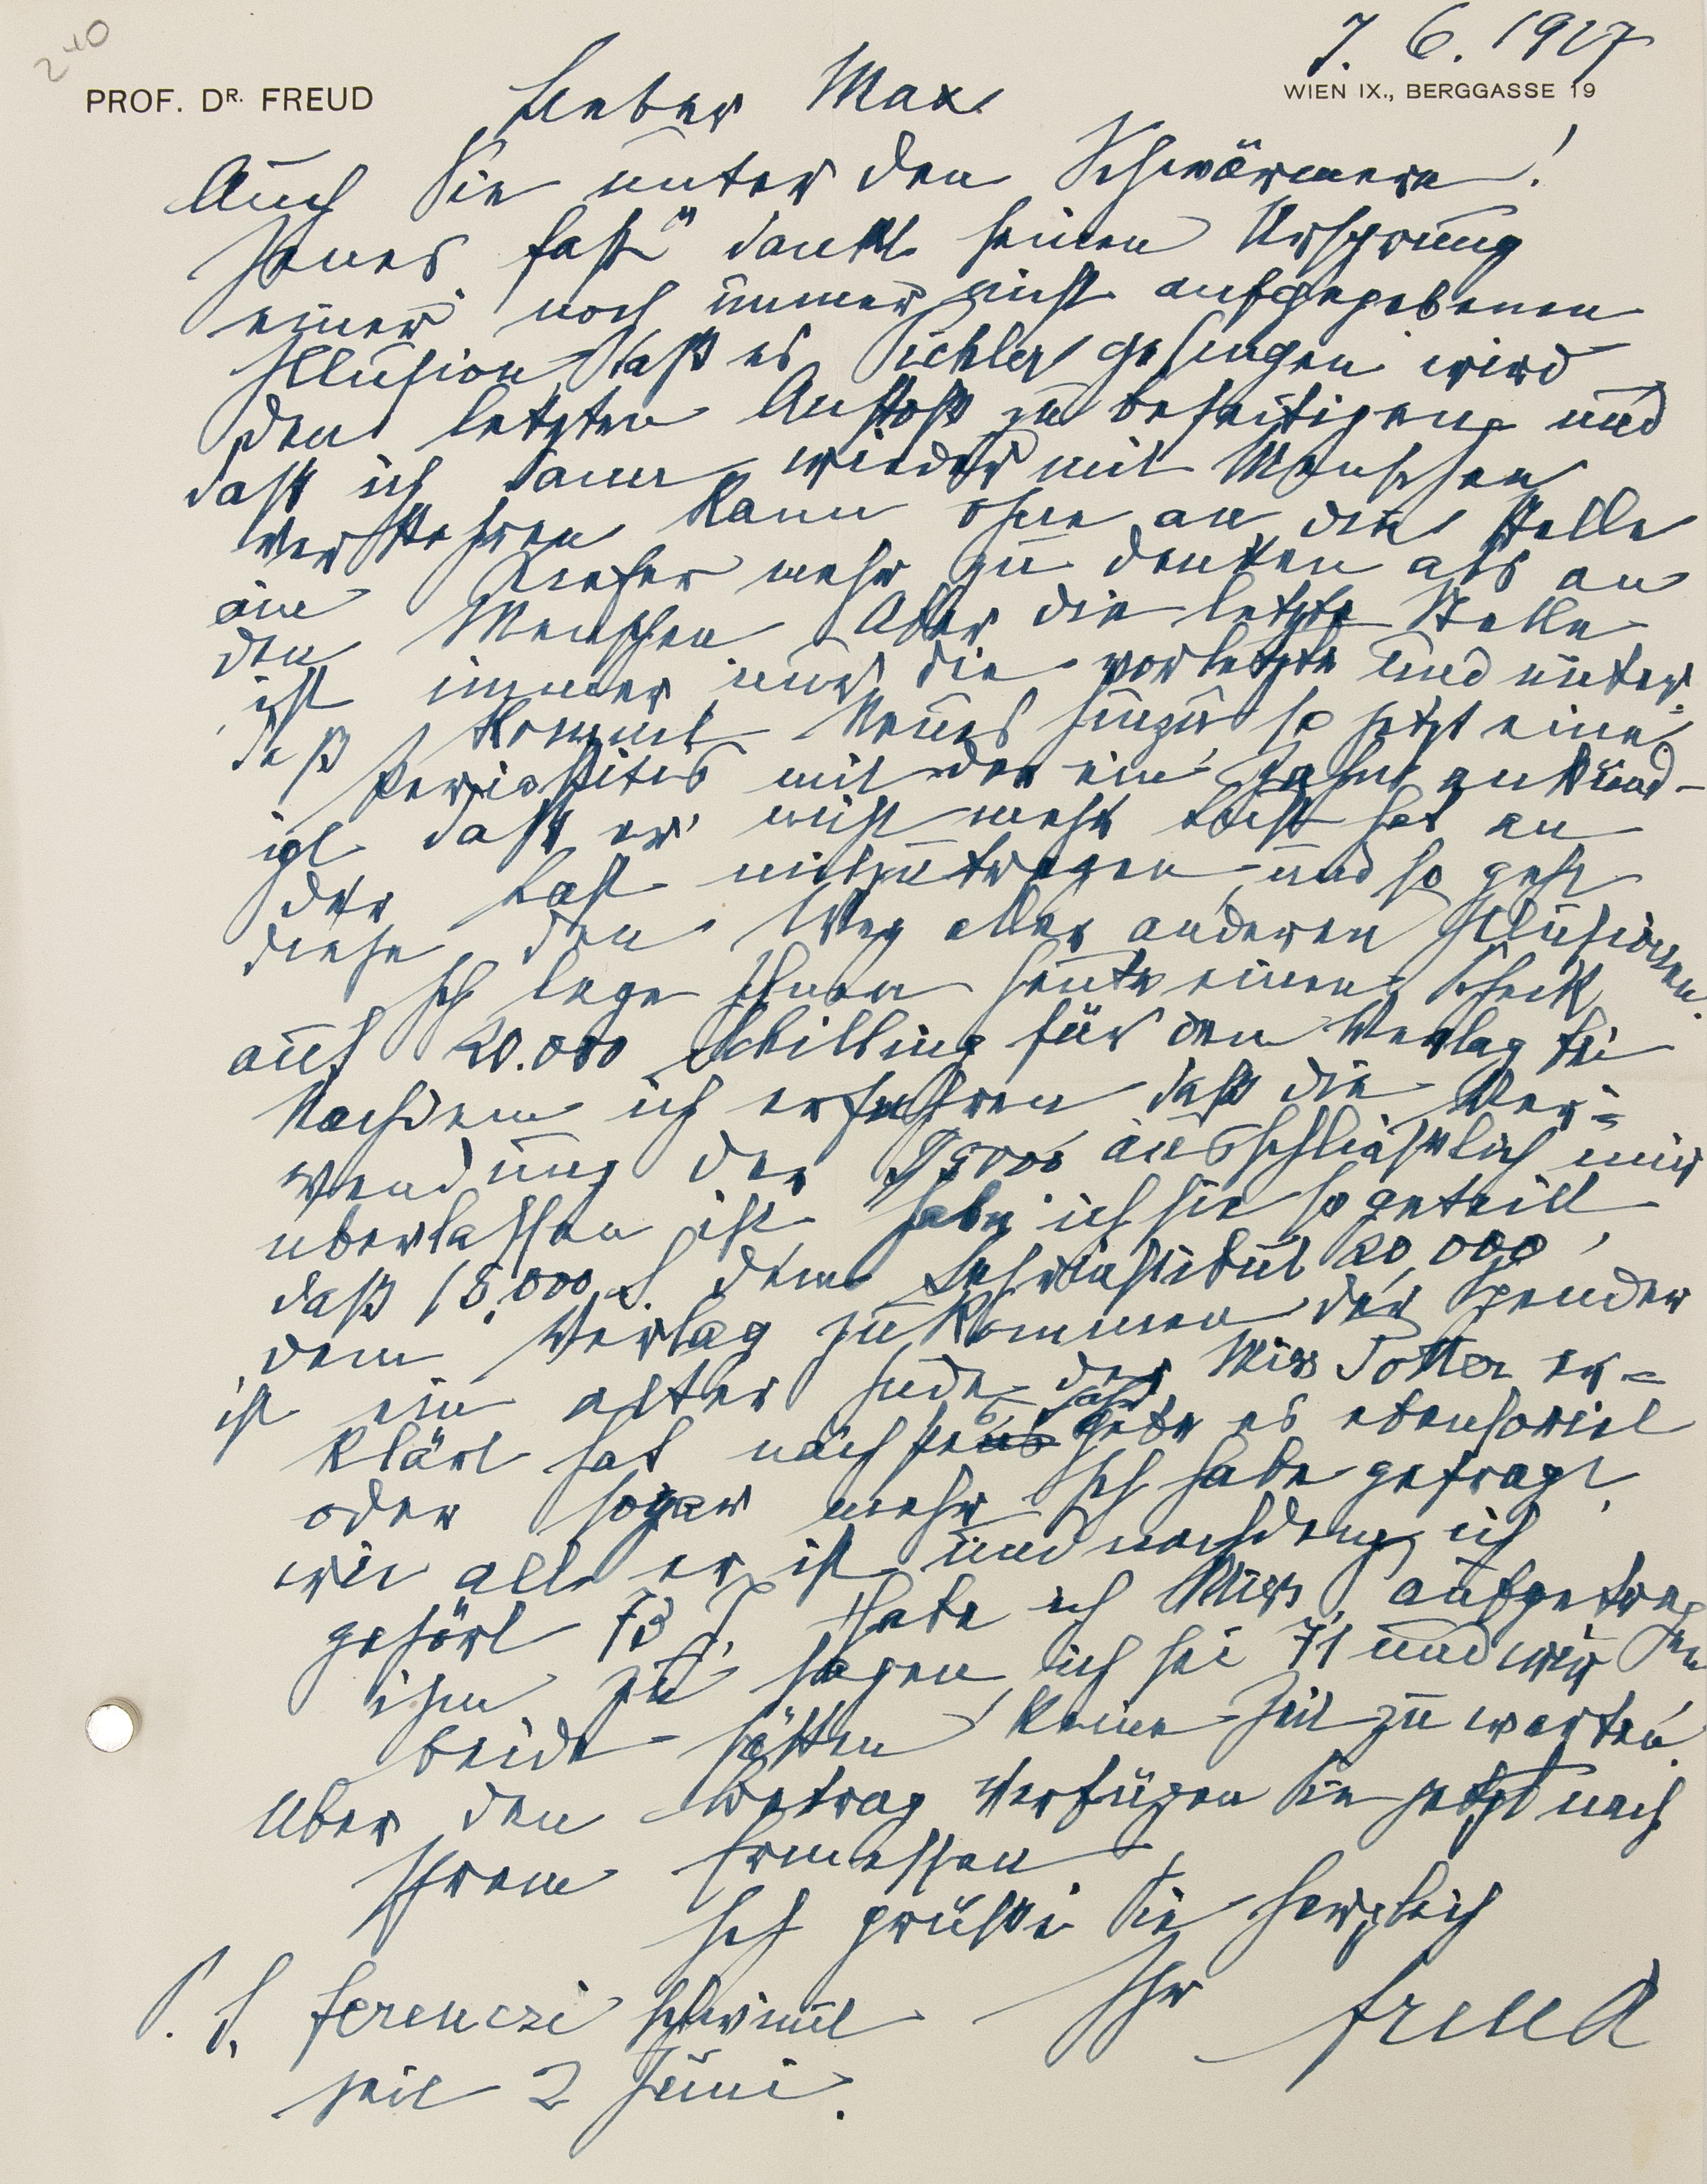 240
7. 6. 1927
PROF. DR. FREUD
WIEN IX., BERGGASSE 19
Lieber Max
Auch Sie unter den Schwärmern!
Jenes „fast" dankt seinen Ursprung
einer noch immer nicht aufgegebenen
Illusion daß es Pichler gelingen wird
den letzten Anstoß zu beseitigen und
daß ich dann wieder mit Menschen
verkehren kann ohne an die Stelle
am Kiefer mehr zu denken als an
den Menschen. Aber die letzte Stelle
ist immer nur die vorletzte und unter
deß kommt Neues hinzu so jetzt eine
Periostitis mit der ein Zahn ankünd-
igt daß er nicht mehr Lust hat an
der Last mitzutragen, und so geht
diese den Weg aller anderen Illusionen.
Ich lege Ihnen heute einen Check
auf 20.000 Schilling für den Verlag bei
Nachdem ich erfahren daß die Ver-
wendung der ausschließlich mir
überlassen ist habe ich sie so geteilt
daß 15,000 S. dem Lehrinstitut 20,000
dem Verlag zukommen der Spender
ist ein alter Jude, der Miss Potter er-
klärt hat nächstens gebe es ebensoviel
oder sogar mehr. Ich habe gefragt,
wie alt er ist und nachdem ich
gehört 73 J, habe ich Miss aufgetragen
ihm zu sagen, ich sei 71 und wir
beide hätten keine Zeit zu warten.
Über den Betrag verfügen Sie jetzt nach
Ihrem Ermessen
Ich grüße Sie herzlich
Ihr Freud
P. S. Ferenczi schwimmt
seit 2 Juni.